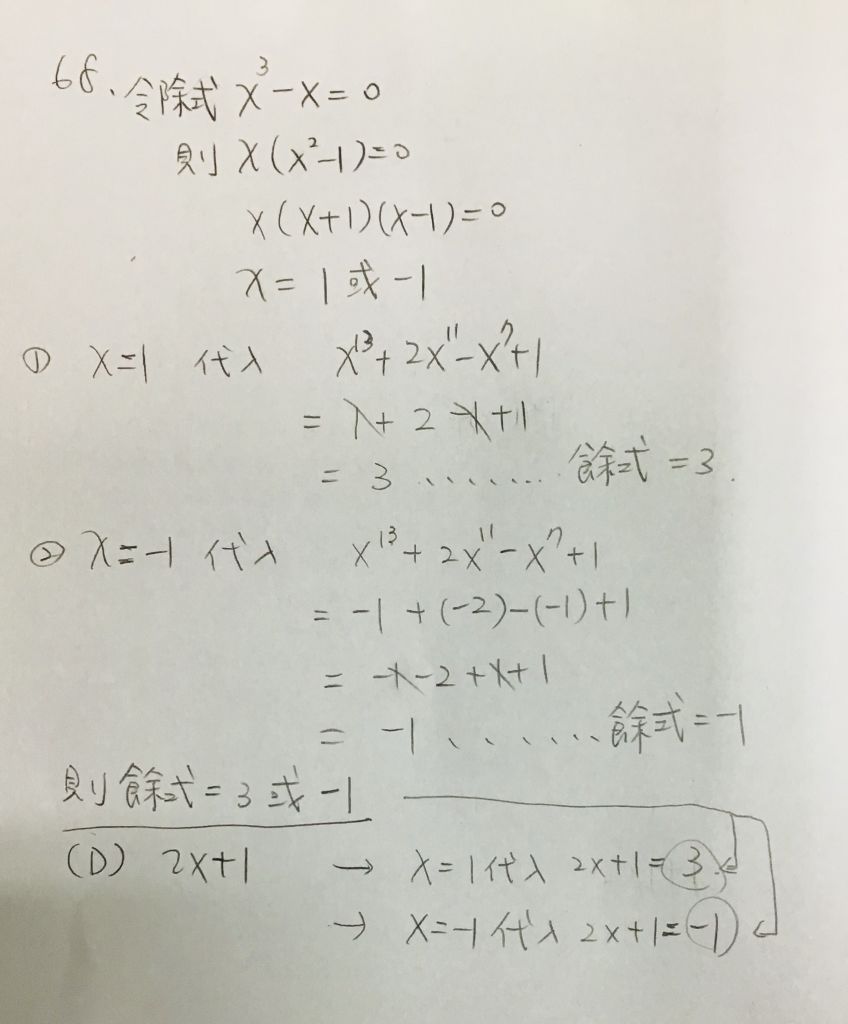 68. 令除式 x³-x=0
則 x(x²-1)=0
x(x+1)(x-1)=0
x= 1 或 -1
① x=1 代入 x¹³+2x¹¹-x⁷+1
= 1+2-1+1
= 3 ........ 餘式=3.
② x=-1 代入 x¹³+2x¹¹-x⁷+1
= -1+(-2)-(-1)+1
= -1-2+1+1
= -1 ........ 餘式=-1
則餘式=3或-1
(D) 2x+1 → x=1代入 2x+1=3
→ x=-1代入 2x+1=-1